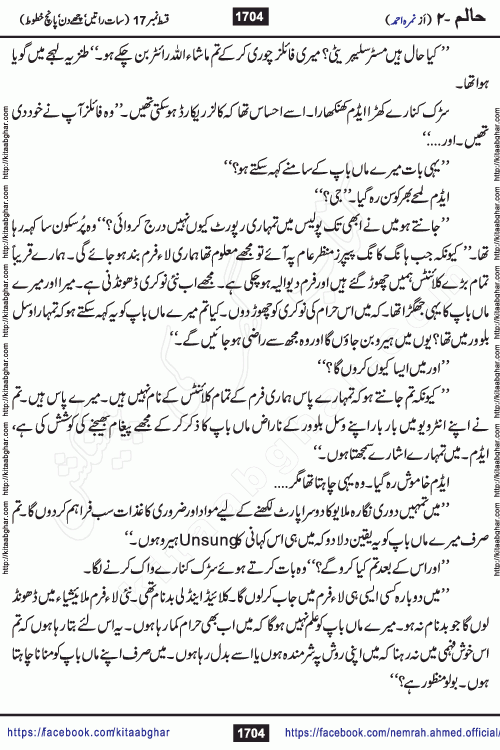 حالم -۲ (از نمرہ احمد) 1704 قسط نمبر 17 (سات راتیں، چھے دن، پانچ خطوط)
’’کیا حال ہیں مسٹر سلیبریٹی؟ میری فائلز چوری کر کے تم ماشاءاللہ رائٹر بن چکے ہو۔‘‘ طنزیہ لہجے میں گویا
ہوا تھا۔
سڑک کنارے کھڑا ایڈم کھنکھارا۔ اسے احساس تھا کہ کالز ریکارڈ ہو سکتی تھیں۔ ’’وہ فائلز آپ نے خود دی
تھیں۔ اور....‘‘
’’یہی بات میرے ماں باپ کے سامنے کہہ سکتے ہو؟‘‘
ایڈم لمحے بھر کو سن رہ گیا۔ ’’جی؟‘‘
’’جانتے ہو میں نے ابھی تک پولیس میں تمہاری رپورٹ کیوں نہیں درج کروائی؟‘‘ وہ پُرسکون سا کہہ رہا
تھا۔ ’’کیونکہ جب ہانگ کانگ پیپرز منظر عام پہ آئے تو مجھے معلوم تھا ہماری لاء فرم بند ہو جائے گی۔ ہمارے قریباً
تمام بڑے کلائنٹس ہمیں چھوڑ گئے ہیں اور فرم دیوالیہ ہو چکی ہے۔ مجھے اب نئی نوکری ڈھونڈنی ہے۔ میرا اور میرے
ماں باپ کا یہی جھگڑا تھا۔ کہ میں اس حرام کی نوکری کو چھوڑ دوں۔ کیا تم میرے ماں باپ کو یہ کہہ سکتے ہو کہ تمہارا وسل
بلوور میں تھا؟ یوں میں ہیرو بن جاؤں گا اور وہ مجھ سے راضی ہو جائیں گے۔‘‘
’’اور میں ایسا کیوں کروں گا؟‘‘
’’کیونکہ تم جانتے ہو کہ تمہارے پاس ہماری فرم کے تمام کلائنٹس کے نام نہیں ہیں۔ میرے پاس ہیں۔ تم
نے اپنے انٹرویو میں بار بار اپنے وسل بلوور کے ناراض ماں باپ کا ذکر کر کے مجھے پیغام بھیجنے کی کوشش کی ہے،
ایڈم۔ میں تمہارے اشارے سمجھتا ہوں۔‘‘
ایڈم خاموش رہ گیا۔ وہ یہی چاہتا تھا مگر....
’’میں تمہیں دوری نگارہ ملایو کا دوسرا پارٹ لکھنے کے لیے مواد اور ضروری کاغذات سب فراہم کر دوں گا۔ تم
صرف میرے ماں باپ کو یہ یقین دلا دو کہ میں ہی اس کہانی کا Unsung ہیرو ہوں۔‘‘
’’اور اس کے بعد تم کیا کرو گے؟‘‘ وہ بات کرتے ہوئے سڑک کنارے واک کرنے لگا۔
’’میں دوبارہ کسی ایسی ہی لاء فرم میں جاب کر لوں گا۔ کلائیڈ اینڈ لی بدنام تھی۔ نئی لاء فرم ملائیشیاء میں ڈھونڈ
لوں گا جو بدنام نہ ہو۔ میرے ماں باپ کو علم نہیں ہو گا کہ میں اب بھی حرام کما رہا ہوں۔ یہ اس لئے بتا رہا ہوں کہ تم
اس خوش فہمی میں نہ رہنا کہ میں اپنی روش پہ شرمندہ ہوں یا اسے بدل رہا ہوں۔ میں صرف اپنے ماں باپ کو منانا چاہتا
ہوں۔ بولو منظور ہے؟‘‘
https://facebook.com/kitaabghar 1704 https://facebook.com/nemrah.ahmed.official/
http://kitaabghar.com